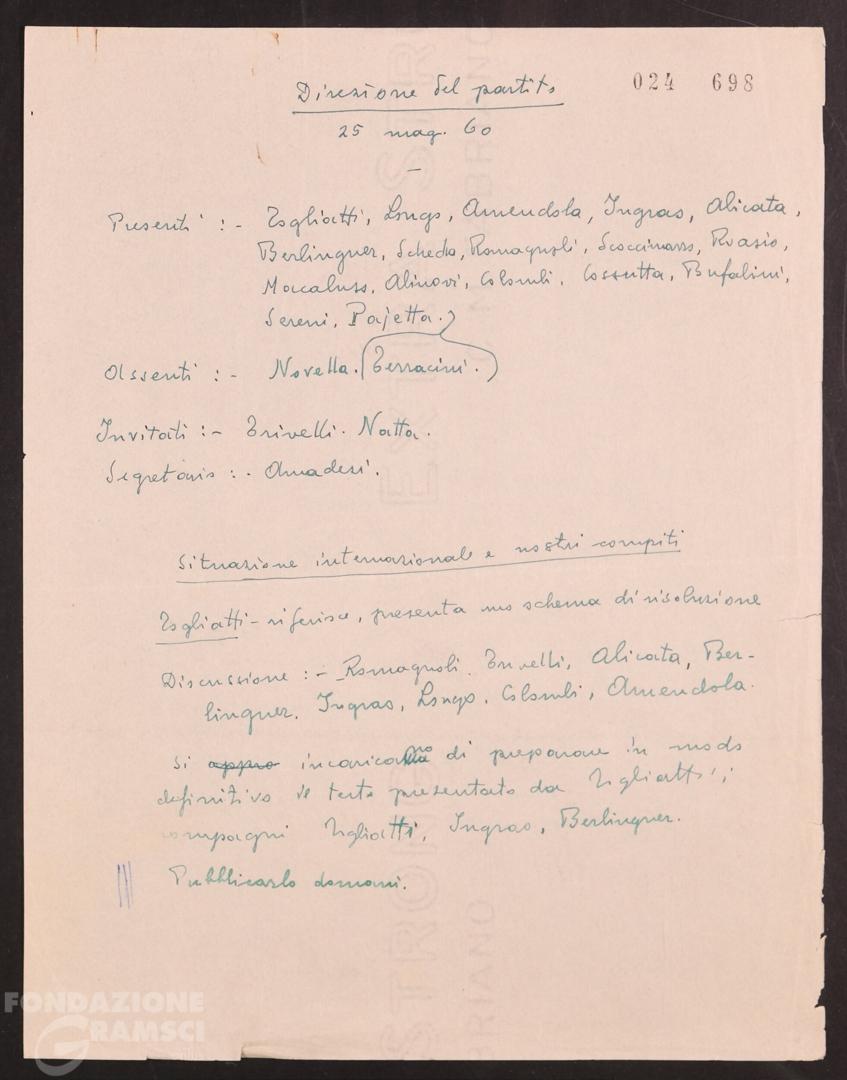 Direzione del partito
024 698
25 mag. 60
—
Presenti :- Togliatti, Longo, Amendola, Ingrao, Alicata,
Berlinguer, Scheda, Romagnoli, Scoccimarro, Roasio,
Macaluso, Alinovi, Colombi, Cossutta, Bufalini,
Sereni, Pajetta.
Assenti :- Novella. (Terracini.)
Invitati :- Trivelli. Natta.
Segretario :- Amadesi.
Situazione internazionale e nostri compiti
Togliatti - riferisce, presenta uno schema di risoluzione
Discussione :- Romagnoli. Trivelli, Alicata, Ber-
linguer. Ingrao, Longo. Colombi, Amendola.
Si appro incaricano di preparare in modo
definitivo il testo presentato da Togliatti i
compagni Togliatti, Ingrao, Berlinguer.
Pubblicarlo domani.
FONDAZIONE
GRAMSCI